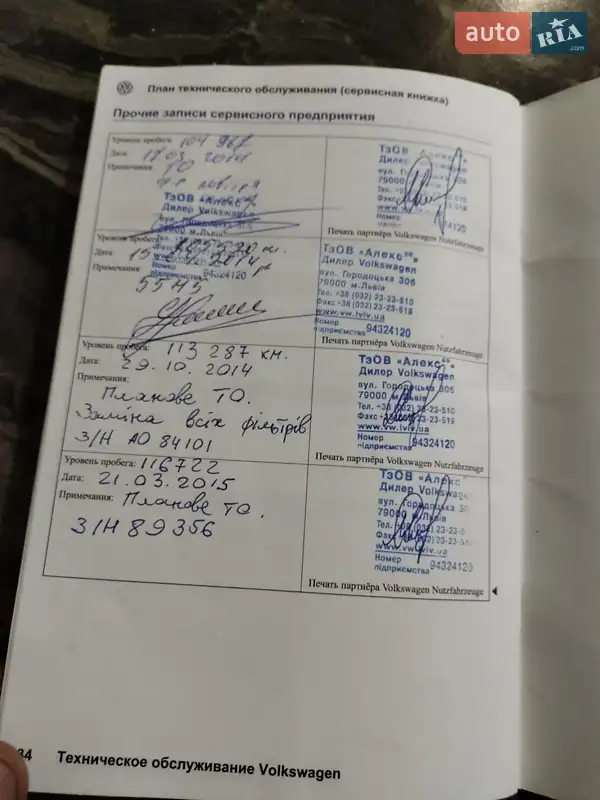 auto RIA .com
План технического обслуживания (сервисная книжка)
Прочие записи сервисного предприятия
Уровень пробега: 104 967
Дата: 17.03 2014
Примечания: ТО
ТзОВ
Дилер Volkswagen
79000 м.Львів
94324120
ТзОВ «Алекс»
Дилер
вул.
79000
Тел.
Факс
www.
Номер
Печать партнёра Volkswagen Nutzfahrzeuge
Уровень пробега:
Дата: 15 2014
Примечания:
5545
ТзОВ «Алекс»
Дилер Volkswagen
вул. Городоцька 306
79000 м.Львів
Тел. +38 (032) 23-23-510
Факс +38 (032) 23-23-519
www.vw.lviv.ua
Номер
підприємства 94324120
Печать партнёра Volkswagen Nutzfahrzeuge
Уровень пробега: 113 287 км.
Дата: 29.10.2014
Примечания:
Планове ТО.
Заміна всіх фільтрів
З/Н АО 84101
ТзОВ «Алекс»
Дилер Volkswagen
вул. Городоцька 306
79000 м.Львів
Тел. +38 (032) 23-23-510
Факс 23-23-519
www.vw.lviv.ua
Номер
підприємства 94324120
Печать партнёра Volkswagen Nutzfahrzeuge
Уровень пробега: 116722
Дата: 21.03.2015
Примечания: Планове ТО.
З/Н 89356
ТзОВ «Алекс»
Дилер Volkswagen
вул. Городоцька
79000 м.Львів
Тел.
Факс
www.vw.lviv.ua
Номер
підприємства 94324120
Печать партнёра Volkswagen Nutzfahrzeuge
34 Техническое обслуживание Volkswagen